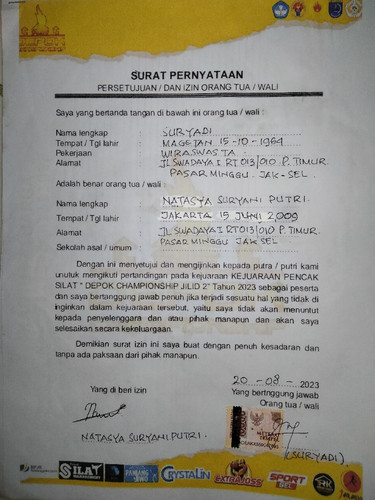 SURAT PERNYATAAN
PERSETUJUAN / DAN IZIN ORANG TUA / WALI
Saya yang bertanda tangan di bawah ini orang tua / wali :
Nama lengkap : SURYADI
Tempat / Tgl lahir : MAGETAN 15-10-1964
Pekerjaan : WIRASWASTA.
Alamat : JL SWADAYA I RT 013/010 P. TIMUR
PASAR MINGGU - JAK-SEL.
Adalah benar orang tua / wali :
Nama lengkap : NATASYA SURYANI PUTRI.
Tempat / Tgl lahir : JAKARTA 15 JUNI 2009
Alamat : JL SWADAYA I RT 013/010 P. TIMUR
PASAR MINGGU JAK SEL
Sekolah asal / umum :
Dengan ini menyetujui dan mengijinkan kepada putra / putri kami
untuk mengikuti pertandingan pada kejuaraan KEJUARAAN PENCAK
SILAT " DEPOK CHAMPIONSHIP JILID 2" Tahun 2023 sebagai peserta
dan saya bertanggung jawab penuh jika terjadi sesuatu hal yang tidak di
inginkan dalam kejuaraan tersebut, yaitu saya tidak akan menuntut
kepada penyelenggara dan atau pihak manapun dan akan saya
selesaikan secara kekeluargaan.
Demikian surat izin ini saya buat dengan penuh kesadaran dan
tanpa ada paksaan dari pihak manapun.
20 - 08 - 2023
Yang di beri izin
Yang bertnggung jawab
Orang tua / wali
METERAI
TEMPEL
NATASYA SURYANI PUTRI.
(SURYADI)
SILAT
CRYSTALIN
EXTRAJOSS
SPORT